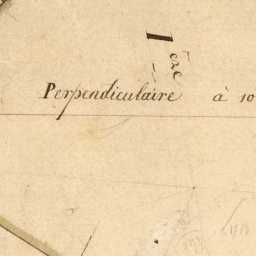 1ere
Perpendiculaire à 10